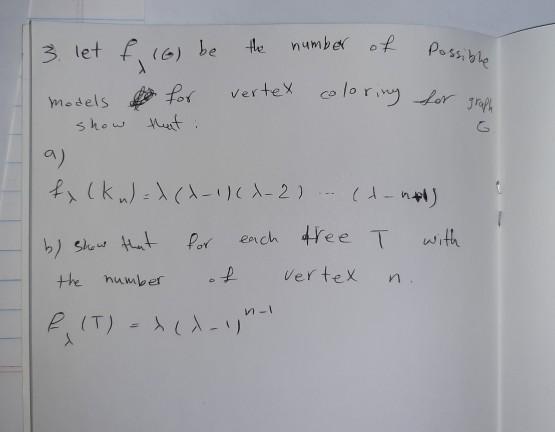 3. let f_λ (G) be the number of Possible
models for vertex coloring for graph
show that : G
a)
f_λ (K_n) = λ (λ-1)(λ-2) ... (λ-n+1)
b) show that for each tree T with
the number of vertex n.
f_λ (T) = λ (λ-1)^{n-1}